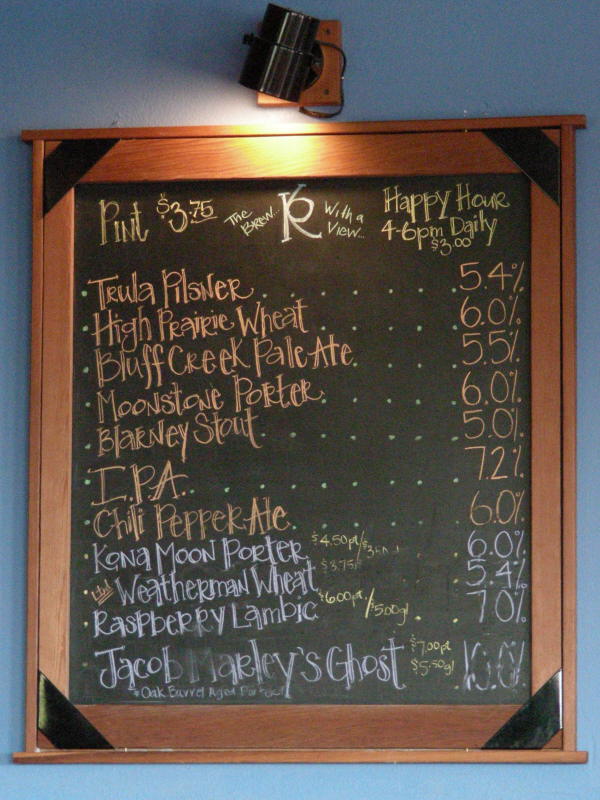 Pint $3.75
The Brew... R With a View...
Happy Hour
4-6pm Daily
$3.00
Trula Pilsner 5.4%
High Prairie Wheat 6.0%
Bluff Creek Pale Ale 5.5%
Moonstone Porter 6.0%
Blarney Stout 5.0%
I.P.A. 7.2%
Chili Pepper Ale 6.0%
Kona Moon Porter $4.50pt/ 6.0%
Weatherman Wheat $3.75 5.4%
Raspberry Lambic $6.00pt./$5.00gl 7.0%
Jacob Marley's Ghost $7.00pt $5.50gl
*Oak Barrel Aged